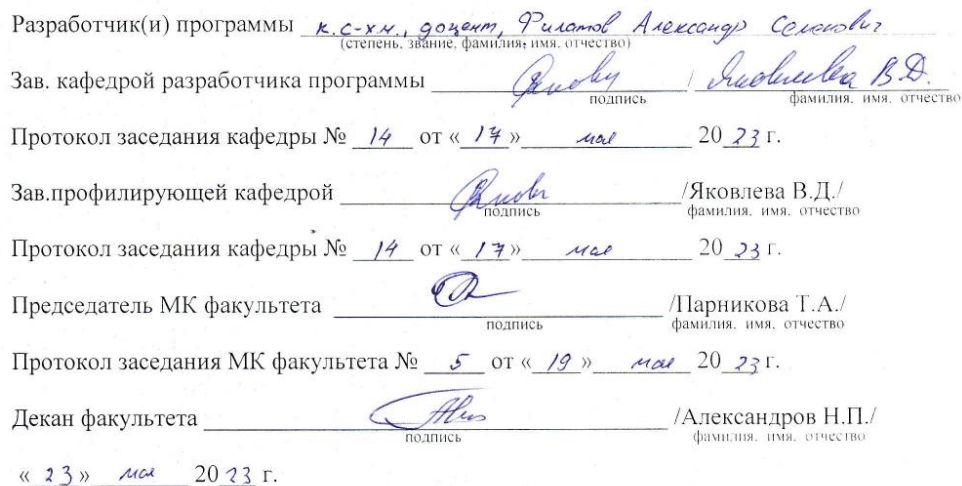 Разработчик(и) программы к.с-х.н., доцент, Филатов Александр Семенович
(степень, звание, фамилия, имя, отчество)
Зав. кафедрой разработчика программы / Яковлева В.Д.
подпись фамилия, имя, отчество
Протокол заседания кафедры № 14 от « 17 » мая 20 23 г.
Зав.профилирующей кафедрой /Яковлева В.Д./
подпись фамилия, имя, отчество
Протокол заседания кафедры № 14 от « 17 » мая 20 23 г.
Председатель МК факультета /Парникова Т.А./
подпись фамилия, имя, отчество
Протокол заседания МК факультета № 5 от « 19 » мая 20 23 г.
Декан факультета /Александров Н.П./
подпись фамилия, имя, отчество
« 23 » мая 20 23 г.